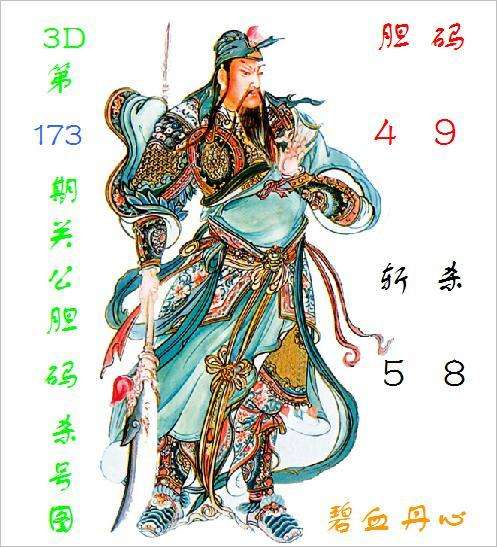 3D
第
173
期
关
公
胆
码
杀
号
图
胆 码
4 9
斩 杀
5 8
碧血丹心